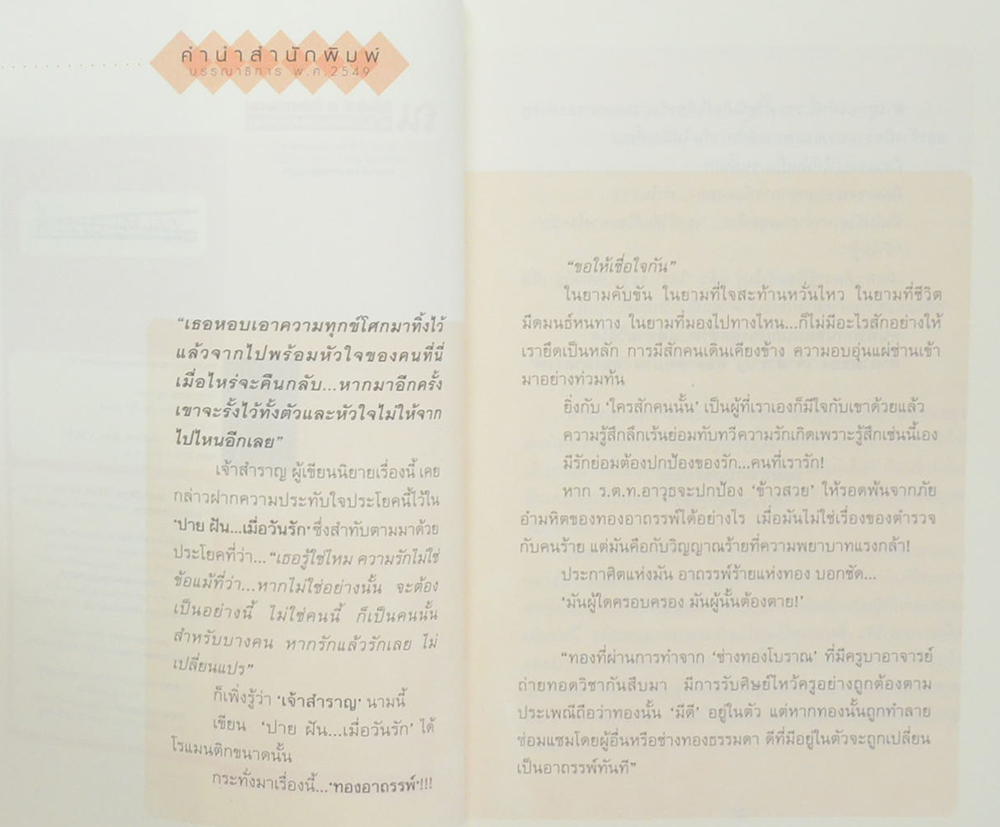 คำนำสำนักพิมพ์
บรรณาธิการ พ.ศ.2549
“เธอหอบเอาความทุกข์โศกมาทิ้งไว้
แล้วจากไปพร้อมหัวใจของคนที่นี่
เมื่อไหร่จะคืนกลับ...หากมาอีกครั้ง
เขาจะรั้งไว้ทั้งตัวและหัวใจไม่ให้จาก
ไปไหนอีกเลย”
เจ้าสำราญ ผู้เขียนนิยายเรื่องนี้ เคย
กล่าวฝากความประทับใจประโยคนี้ไว้ใน
‘ปาย ฝัน...เมื่อวันรัก’ ซึ่งสำทับตามมาด้วย
ประโยคที่ว่า...“เธอรู้ใช่ไหม ความรักไม่ใช่
ข้อแม้ที่ว่า...หากไม่ใช่อย่างนั้น จะต้อง
เป็นอย่างนี้ ไม่ใช่คนนี้ ก็เป็นคนนั้น
สำหรับบางคน หากรักแล้วรักเลย ไม่
เปลี่ยนแปร”
ก็เพิ่งรู้ว่า ‘เจ้าสำราญ’ นามนี้
เขียน ‘ปาย ฝัน...เมื่อวันรัก’ ได้
โรแมนติกขนาดนั้น
กระทั่งมาเรื่องนี้...‘ทองอาถรรพ์’!!!
“ขอให้เชื่อใจกัน”
ในยามคับขัน ในยามที่ใจสะท้านหวั่นไหว ในยามที่ชีวิต
มืดมนธ์หนทาง ในยามที่มองไปทางไหน...ก็ไม่มีอะไรสักอย่างให้
เรายึดเป็นหลัก การมีสักคนเดินเคียงข้าง ความอบอุ่นแผ่ซ่านเข้า
มาอย่างท่วมท้น
ยิ่งกับ ‘ใครสักคนนั้น’ เป็นผู้ที่เราเองก็มีใจกับเขาด้วยแล้ว
ความรู้สึกลึกเร้นย่อมทับทวีความรักเกิดเพราะรู้สึกเช่นนี้เอง
มีรักย่อมต้องปกป้องของรัก...คนที่เรารัก!
หาก ร.ต.ท.อาวุธจะปกป้อง ‘ข้าวสวย’ ให้รอดพ้นจากภัย
อำมหิตของทองอาถรรพ์ได้อย่างไร เมื่อมันไม่ใช่เรื่องของตำรวจ
กับคนร้าย แต่มันคือกับวิญญาณร้ายที่ความพยาบาทแรงกล้า!
ประกาศิตแห่งมัน อาถรรพ์ร้ายแห่งทอง บอกชัด...
‘มันผู้ใดครอบครอง มันผู้นั้นต้องตาย!’
“ทองที่ผ่านการทำจาก ‘ช่างทองโบราณ’ ที่มีครูบาอาจารย์
ถ่ายทอดวิชากันสืบมา มีการรับศิษย์ไหว้ครูอย่างถูกต้องตาม
ประเพณีถือว่าทองนั้น ‘มีดี’ อยู่ในตัว แต่หากทองนั้นถูกทำลาย
ซ่อมแซมโดยผู้อื่นหรือช่างทองธรรมดา ดีที่มีอยู่ในตัวจะถูกเปลี่ยน
เป็นอาถรรพ์ทันที”